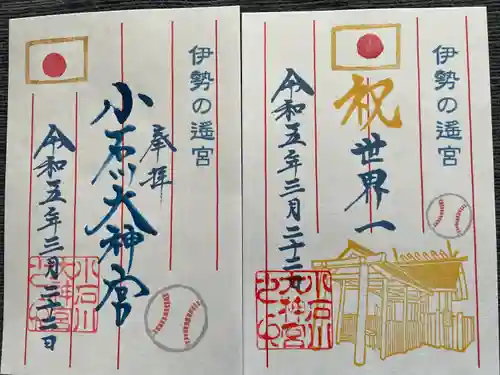 伊勢の遙宮
奉拝
小石川大神宮
令和五年三月二十二日
小石川
大神宮
之印
伊勢の遙宮
祝
世界一
令和五年三月二十二日
小石川
大神宮
之印